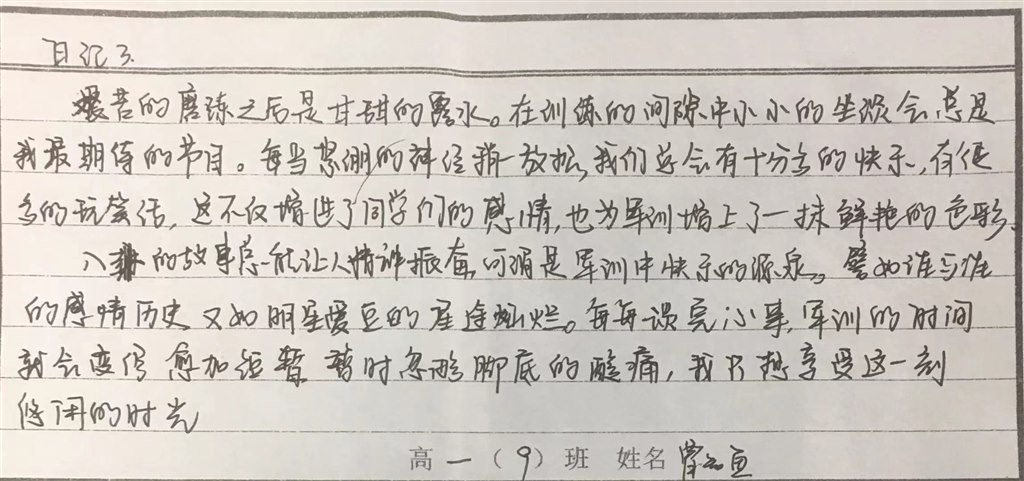 日记3.
艰苦的磨练之后是甘甜的露水。在训练的间隙中小小的坐谈会总是
我最期待的节目。每当紧绷的神经稍一放松,我们总会有十分多的快乐,有很
多的玩笑话,这不仅增进了同学们的感情,也为军训增上了一抹鲜艳的色彩。
八卦的故事总能让人精神振奋,可谓是军训中快乐的源泉。譬如谁与谁
的感情历史 又如明星爱豆的星途灿烂。每每谈完小事,军训的时间
就会变得愈加短暂 暂时忽略脚底的酸痛,我只想享受这一刻
悠闲的时光
高一(9)班 姓名 曾